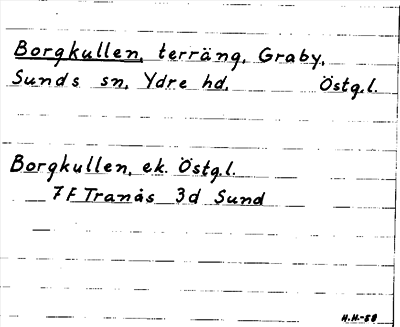 Borgkullen, terräng, Graby,
Sunds sn, Ydre hd, Östg.l.
Borgkullen, ek. Östg.l.
7 F Tranås 3d Sund
H.H-58